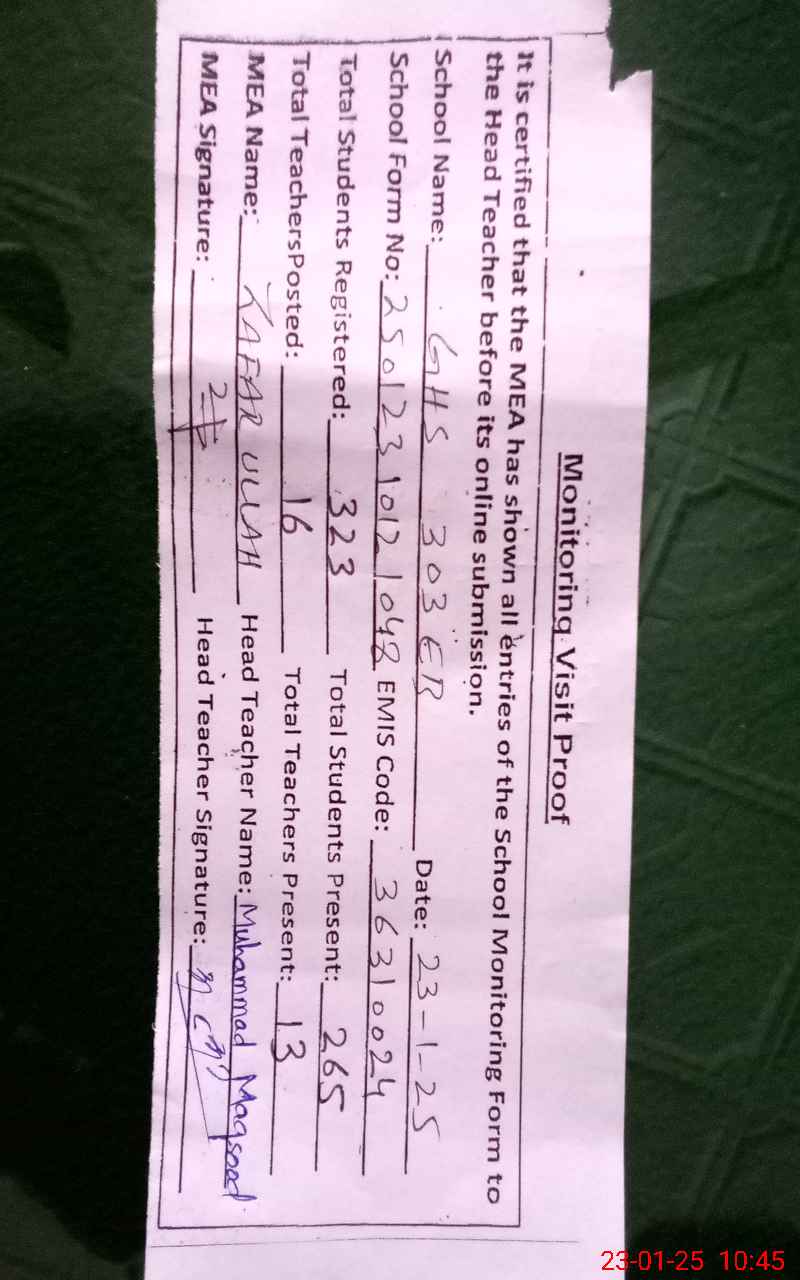 Monitoring Visit Proof
It is certified that the MEA has shown all entries of the School Monitoring Form to
the Head Teacher before its online submission.
School Name: GHS 303 EB Date: 23-1-25
School Form No: 25012310121048 EMIS Code: 36310024
Total Students Registered: 323 Total Students Present: 265
Total TeachersPosted: 16 Total Teachers Present: 13
MEA Name: ZAFAR ULLAH Head Teacher Name: Muhammad Maqsood
MEA Signature: Head Teacher Signature:
23-01-25 10:45